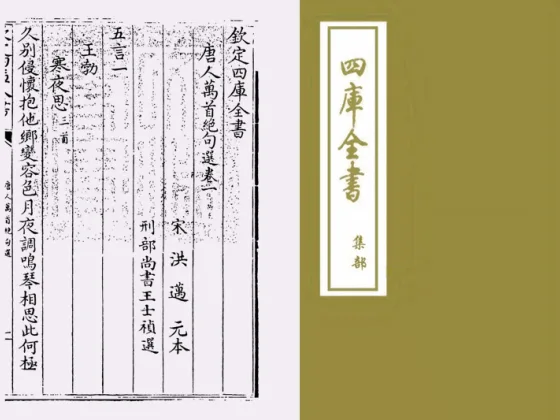 欽定四庫全書
唐人萬首絕句選卷一
宋 洪邁 元本
刑部尚書王士禎選
五言一
王勃
寒夜思 三首
久别侵懷抱他鄉變容色月夜調鳴琴相思此何極
唐人萬首絕句選
四庫全書
集部